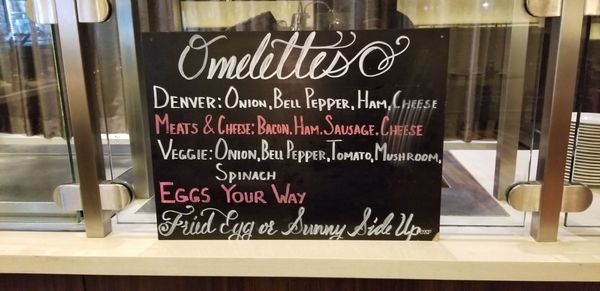 Omelettes
Denver: Onion, Bell Pepper, Ham, Cheese
Meats & Cheese: Bacon, Ham, Sausage, Cheese
Veggie: Onion, Bell Pepper, Tomato, Mushroom,
Spinach
Eggs Your Way
Fried Egg or Sunny Side Up